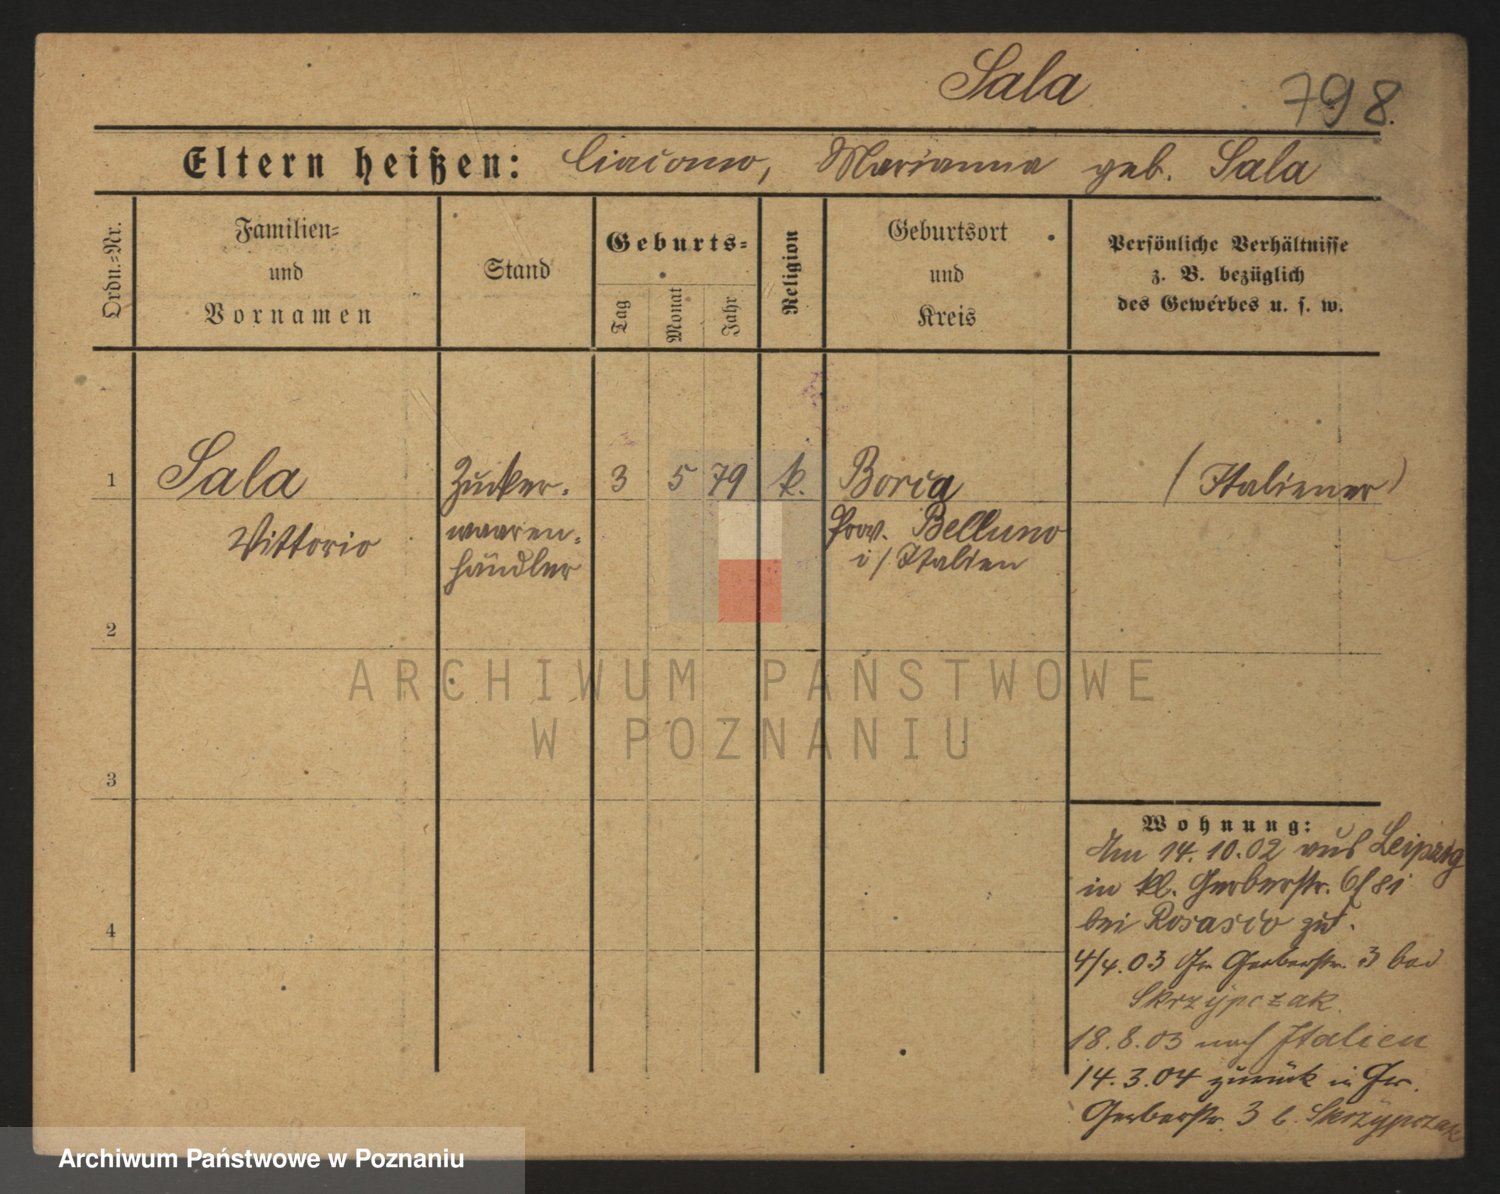 Sala 798.
Eltern heißen: Ciacomo, Marianna geb. Sala
Ordn.-Nr.
Familien- und Vornamen
Stand
Geburts-
Tag
Monat
Jahr
Religion
Geburtsort und Kreis
Persönliche Verhältnisse
z. B. bezüglich
des Gewerbes u. s. w.
1 Sala Zucker- 3 5 79 k. Borca (Italiener)
Vittorio waaren- Prov. Belluno
händler i/Italien
2
ARCHIWUM PAŃSTWOWE
W POZNANIU
3
4
Wohnung:
Am 14.10.02 aus Leipzig
in kl. Gerberstr. 6
bei Rosasco zu.
4/4.03 Gr Gerberstr. 3 bei
Skrzypczak
18.8.03 nach Italien
14.3.04 zurück in Gr.
Gerberstr. 3 b. Skrzypczak
Archiwum Państwowe w Poznaniu